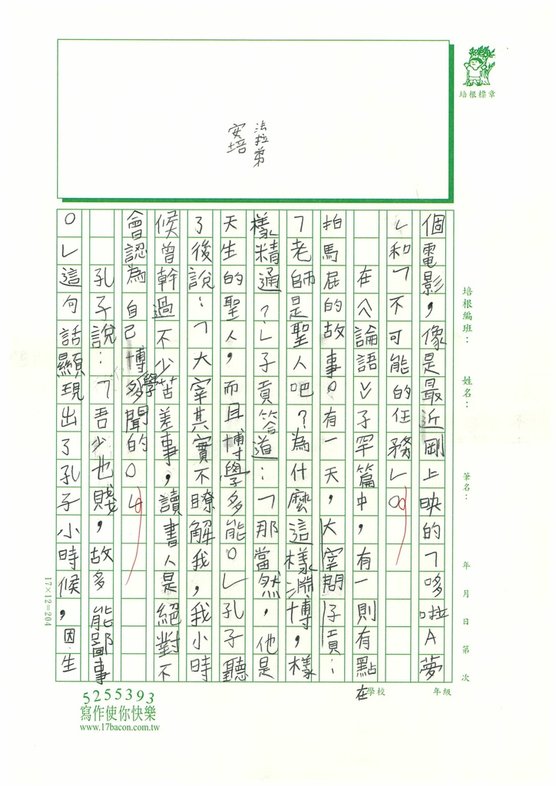 培根標章
法拉第
安培
培根編班：
姓名：
筆名：
年 月 日 第 次
個電影，像是最近剛上映的「哆啦A夢
」和「不可能的任務」。
在《論語》子罕篇中，有一則有點
在拍馬屁的故事。有一天，大宰問子貢：
「老師是聖人吧？為什麼這樣淵博，樣
樣精通？」子貢答道：「那當然，他是
天生的聖人，而且博學多能。」孔子聽
了後說：「大宰其實不瞭解我，我小時
候曾幹過不少苦差事，讀書人是絕對不
會認為自己博學多聞的。」
孔子說：「吾少也賤，故多能鄙事
。」這句話顯現出了孔子小時候，因生
17×12=204
學校
年級
5255393
寫作使你快樂
www.17bacon.com.tw